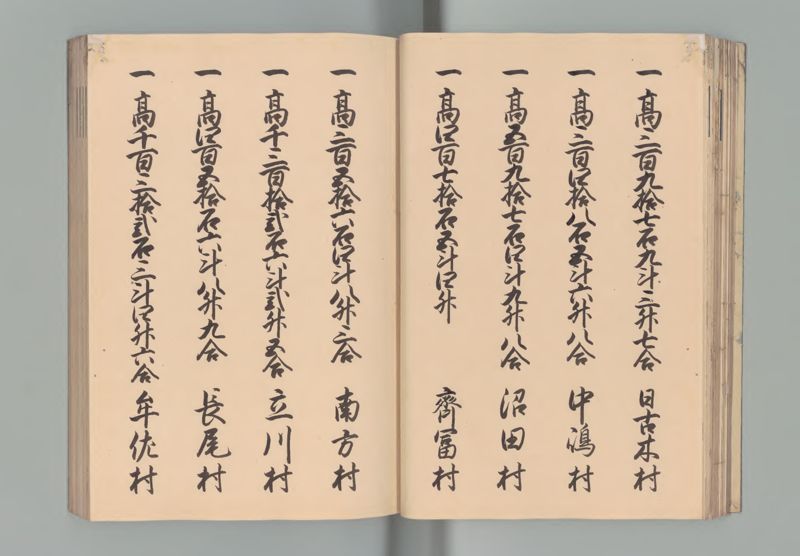 一 髙三百九拾七石九斗三升七合 日古木村
一 髙三百四拾八石五斗六升八合 中嶋村
一 髙五百九拾七石四斗九升八合 沼田村
一 髙四百七拾石五斗四升 齊冨村
一 髙三百五拾六石四斗八升三合 南方村
一 髙千三百拾弐石六斗弐升五合 立川村
一 髙四百五拾石六斗八升九合 長尾村
一 髙千百三拾弐石三斗四升六合 牟佐村